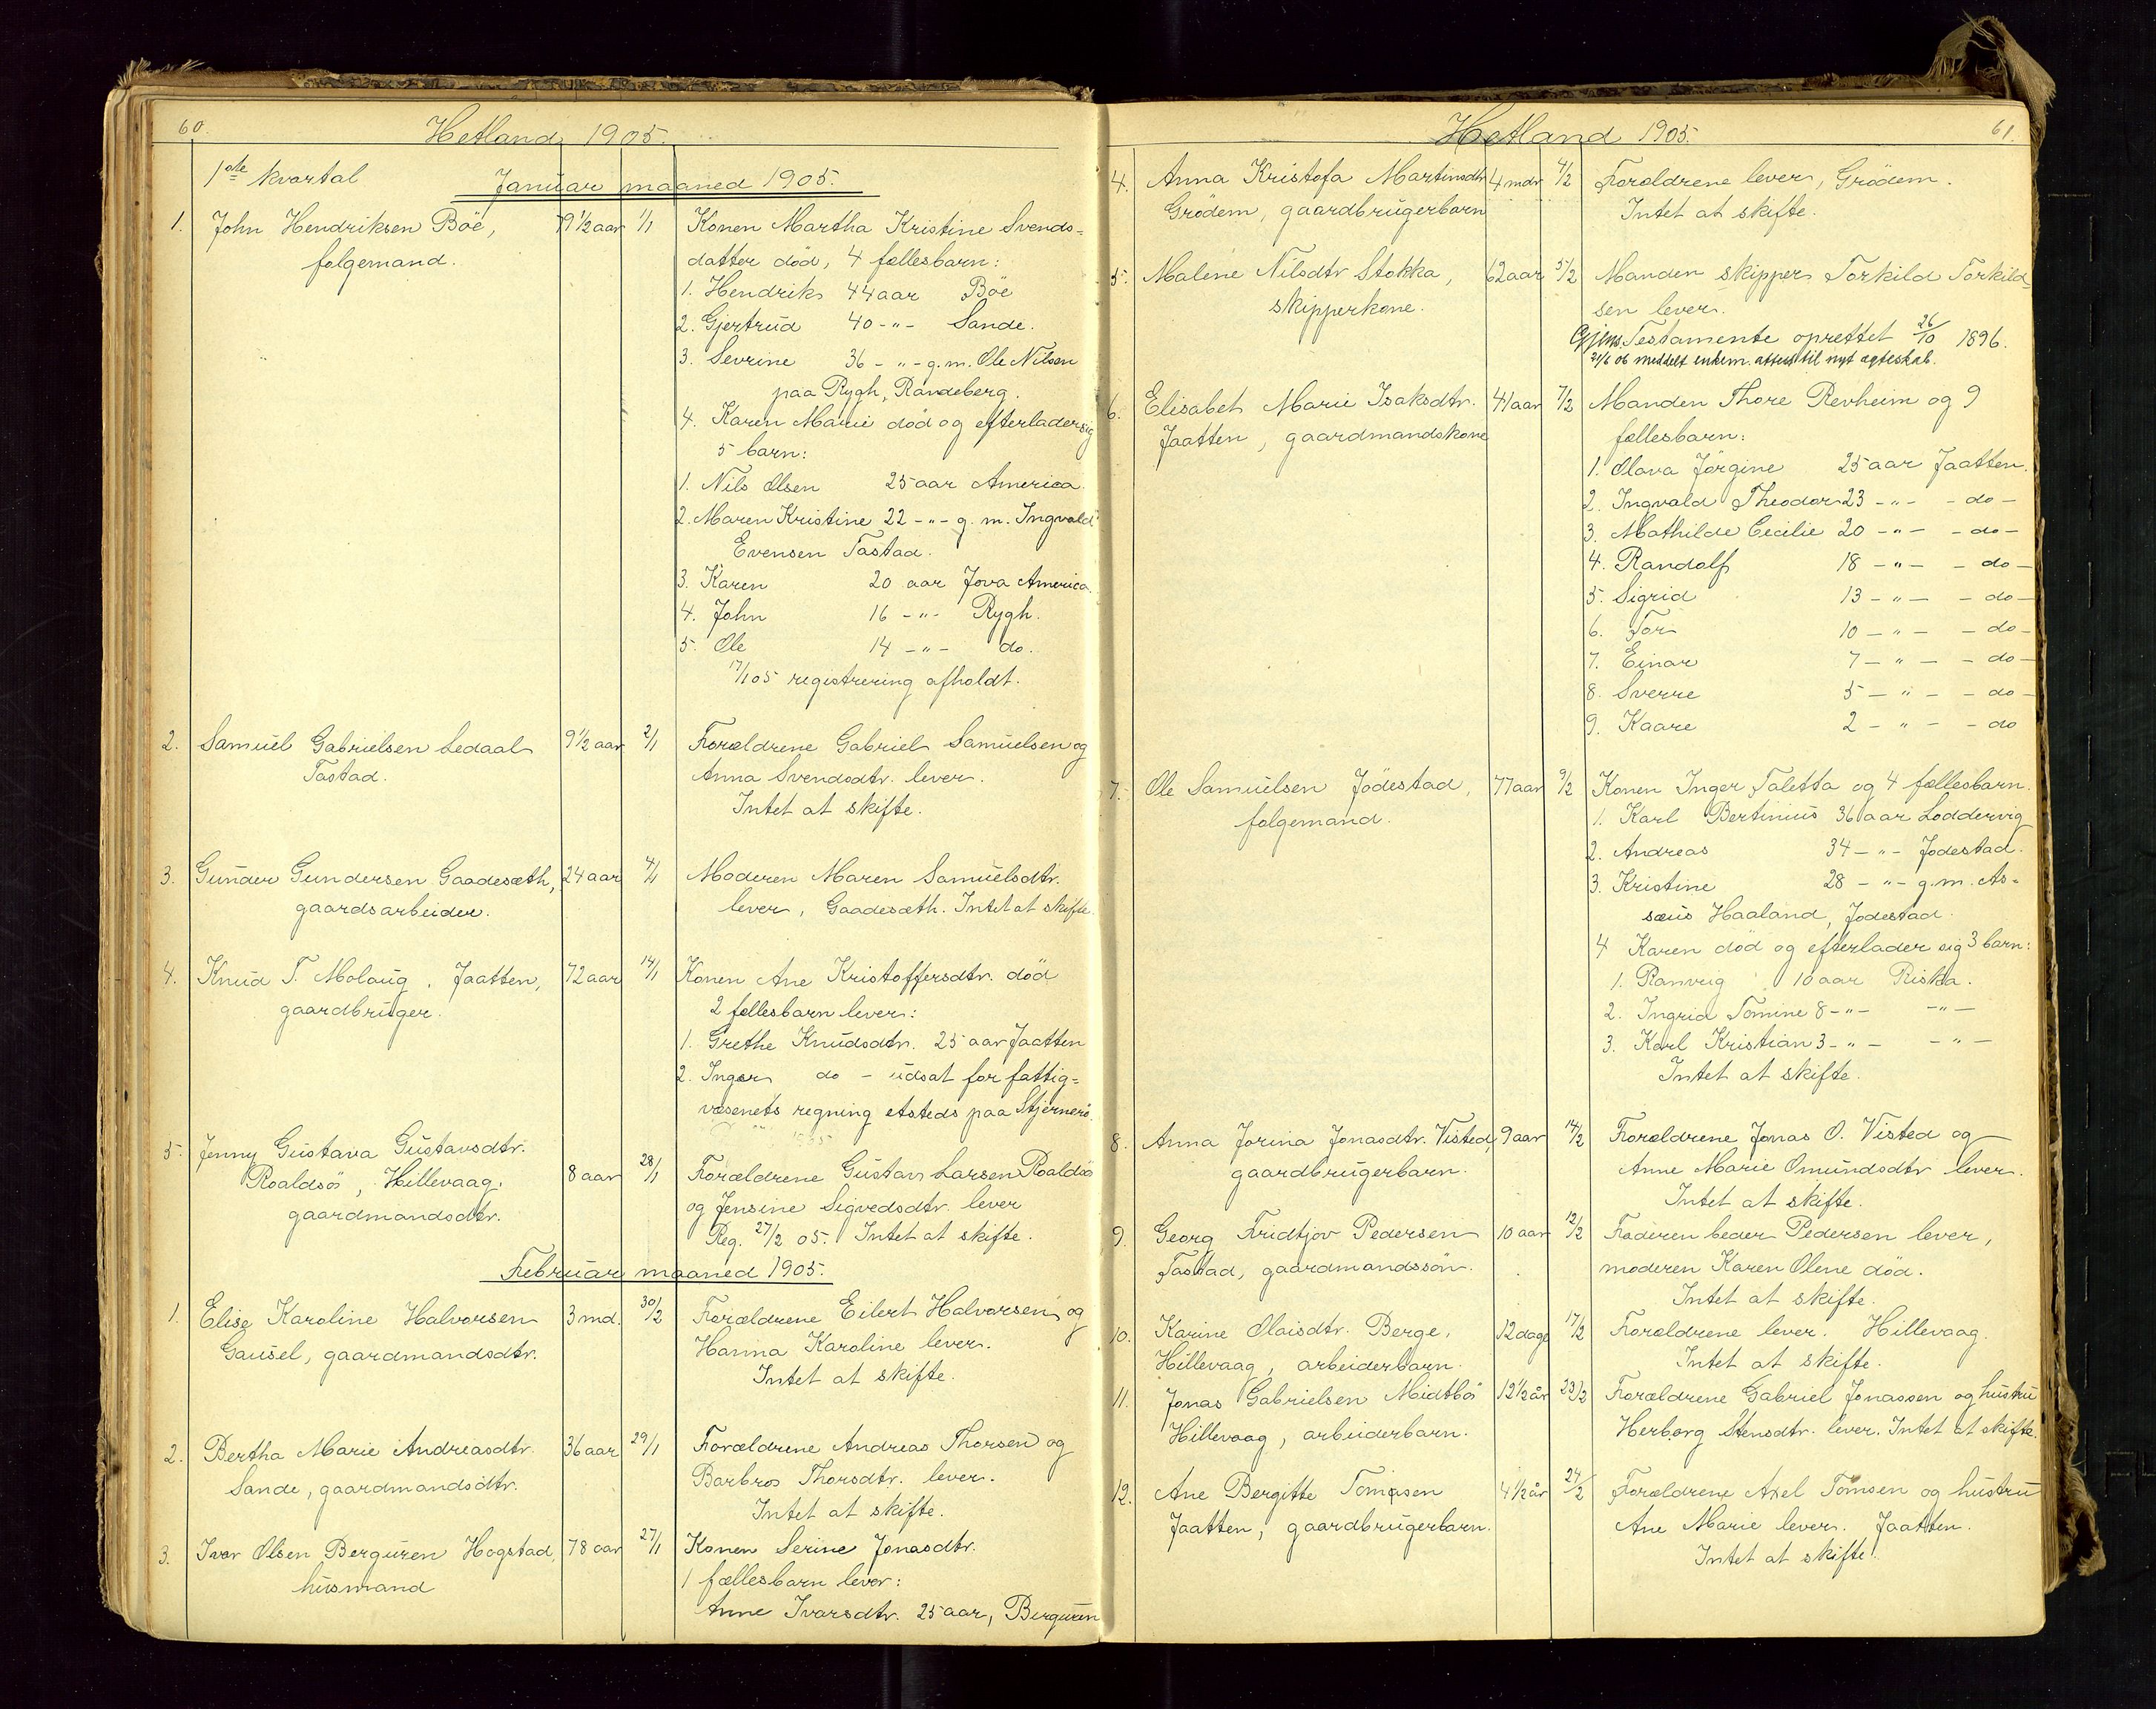 60.
Hetland 1905.
1ste kvartal
Januar maaned 1905.
1. John Hendriksen Böe, 79 1/2 aar 1/1 Konen Martha Kristine Svends=
folgemand. datter död, 4 fællesbarn:
1. Hendrik 44 aar Böe
2. Gjertrud 40 -"- Sande.
3. Sevrine 36 -"- g.m. Ole Nilsen
paa Rygh, Randeberg.
4. Karen Marie död og efterlader sig
5 barn:
1. Nils Olsen 25 aar America.
2. Maren Kristine 22 -"- g. m. Ingvald
Evensen Tastad.
3. Karen 20 aar Jova America.
4. John 16 -"- Rygh.
5. Ole 14 -"- do.
17/1 05 registrering afholdt.
2. Samuel Gabrielsen Ledaal 9 1/2 aar 2/1 Forældrene Gabriel Samuelsen og
Tastad. Anna Svendsdtr. lever.
Intet at skifte.
3. Gunder Gundersen Gaadesæth, 24 aar 4/1 Moderen Maren Samuelsdtr.
gaardsarbeider. lever, Gaadesæth. Intet at skifte.
4. Knud T. Molaug. Jaatten, 72 aar 14/1 Konen Ane Kristoffersdtr. död
gaardbruger. 2 fællesbarn lever:
1. Grethe Knudsdtr. 25 aar Jaatten
2. Inger do - udsat for fattig=
væsenets regning etsteds paa Stjernerö.
5. Jenny Gustava Gustavsdtr.
Roaldsö, Hillevaag. 8 aar 28/1 Forældrene Gustav Larsen Roaldsö
gaardmandsdtr. og Jensine Sigvedsdtr. lever
Reg. 27/2 05. Intet at skifte.
Februar maaned 1905.
1. Elise Karoline Halvorsen 3 md. 30/2 Forældrene Eilert Halvorsen og
Gausel, gaardmandsdtr. Hanna Karoline lever.
Intet at skifte.
2. Bertha Marie Andreasdtr. 36 aar 29/1 Forældrene Andreas Thorsen og
Sande, gaardmandsdtr. Barbros Thorsdtr. lever.
Intet at skifte.
3. Ivar Olsen Berguren Hogstad, 78 aar 27/1 Konen Serine Jonasdtr.
husmand 1 fællesbarn lever:
Anne Ivarsdtr. 25 aar, Berguren
Hetland 1905.
61.
4. Anna Kristofa Martinsdtr 4 mdr 4/2 Forældrene lever, Grödem.
Grödem, gaardbrugerbarn Intet at skifte.
5. Malene Nilsdtr Stokka, 62 aar 5/2 Manden skipper Torkild Torkild=
skipperkone. sen lever.
Gjens. Testamente oprettet 26/10 1896.
21/6 06 meddelt enkem. attest til nyt ægteskab.
6. Elisabet Marie Isaksdtr. 41 aar 7/2 Manden Thore Revheim og 9
Jaatten, gaardmandskone fællesbarn:
1. Olava Jörgine 25 aar Jaatten.
2. Ingvald Theodor 23 -"- - do -
3. Mathilde Cecilie 20 -"- - do -
4. Randolf 18 -"- - do -
5. Sigrid 13 -"- - do -
6. Tor 10 -"- - do -
7. Einar 7 -"- - do -
8. Sverre 5 -"- - do -
9. Kaare 2 -"- - do
7. Ole Samuelsen Jödestad, 77 aar 9/2 Konen Inger Taletta og 4 fællesbarn.
folgemand. 1. Karl Bertinius 36 aar Loddervig
2. Andreas 34 -"- Jodestad.
3. Kristine 28 -"- g.m. As=
sæus Haaland, Jodestad.
4 Karen död og efterlader sig 3 barn:
1. Ranveig 10 aar Riska.
2. Ingrid Tomine 8 -"- -"-
3. Karl Kristian 3 -"- -"-
Intet at skifte.
8. Anna Jorina Jonasdtr. Visted, 9 aar 14/2 Forældrene Jonas O. Visted og
gaardbrugerbarn. Anne Marie Omundsdtr lever.
Intet at skifte.
9. Georg Fridtjov Pedersen 10 aar 12/2 Faderen Peder Pedersen lever,
Tastad, gaardmandssön. moderen Karen Olene död.
Intet at skifte.
10. Karine Olaisdtr. Berge, 12 dage 17/2 Forældrene lever. Hillevaag.
Hillevaag, arbeiderbarn. Intet at skifte.
11. Jonas Gabrielsen Midtbö 12 1/2 år 23/2 Forældrene Gabriel Jonassen og hustru
Hillevaag, arbeiderbarn. Herborg Stensdtr. lever. Intet at skifte.
12. Ane Bergitte Tomasen 4 1/2 år 24/2 Forældrene Axel Tomsen og hustru
Jaatten, gaardbrugerbarn. Ane Marie lever. Jaatten.
Intet at skifte.